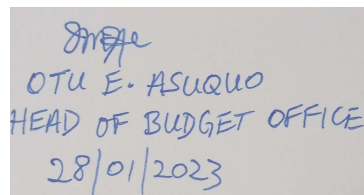 OTU E. ASUQUO
HEAD OF BUDGET OFFICE
28/01/2023